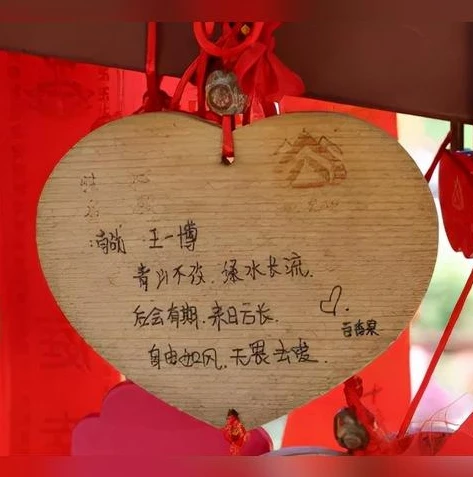 姓 心
名 愿
肖战 王一博
青山不改,绿水长流.
后会有期,来日方长.
百香果
自由如风,无畏去爱.